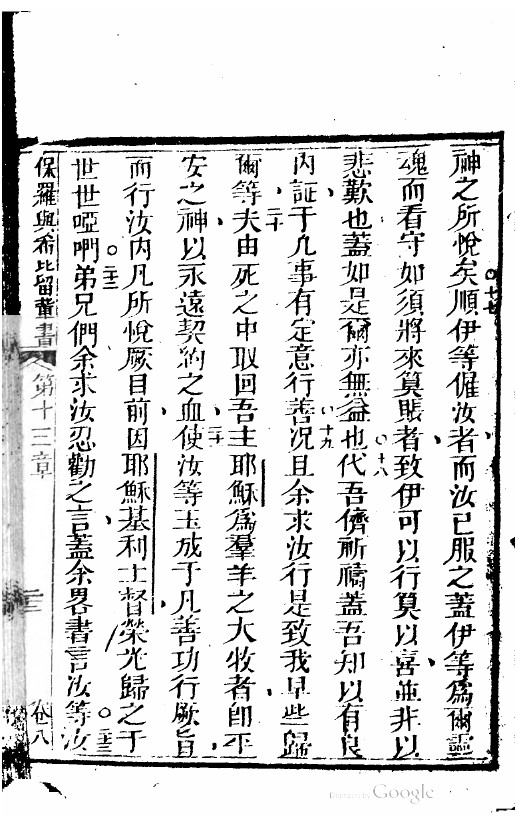 神之所悅矣順伊等倔汝者而汝已服之蓋伊等爲爾靈
十七
魂而看守如須將來算賬者致伊可以行算以喜並非以
悲歎也蓋如是爾亦無益也代吾儕祈禱蓋吾知以有良
十八
內証于凡事有定意行善况且余求汝行是致我早些歸
十九
爾等夫由死之中取回吾主耶穌爲羣羊之大牧者卽平
二十
安之神以永遠契約之血使汝等玉成于凡善功行厥旨
二一
而行汝內凡所悅厥目前因耶穌基利士督榮光歸之于
世世啞啊弟兄們余求汝忍勸之言蓋余畧書言汝等汝
二二
二三
保羅與希比留輩書
第十三章
二三
卷八
Digitized by Google